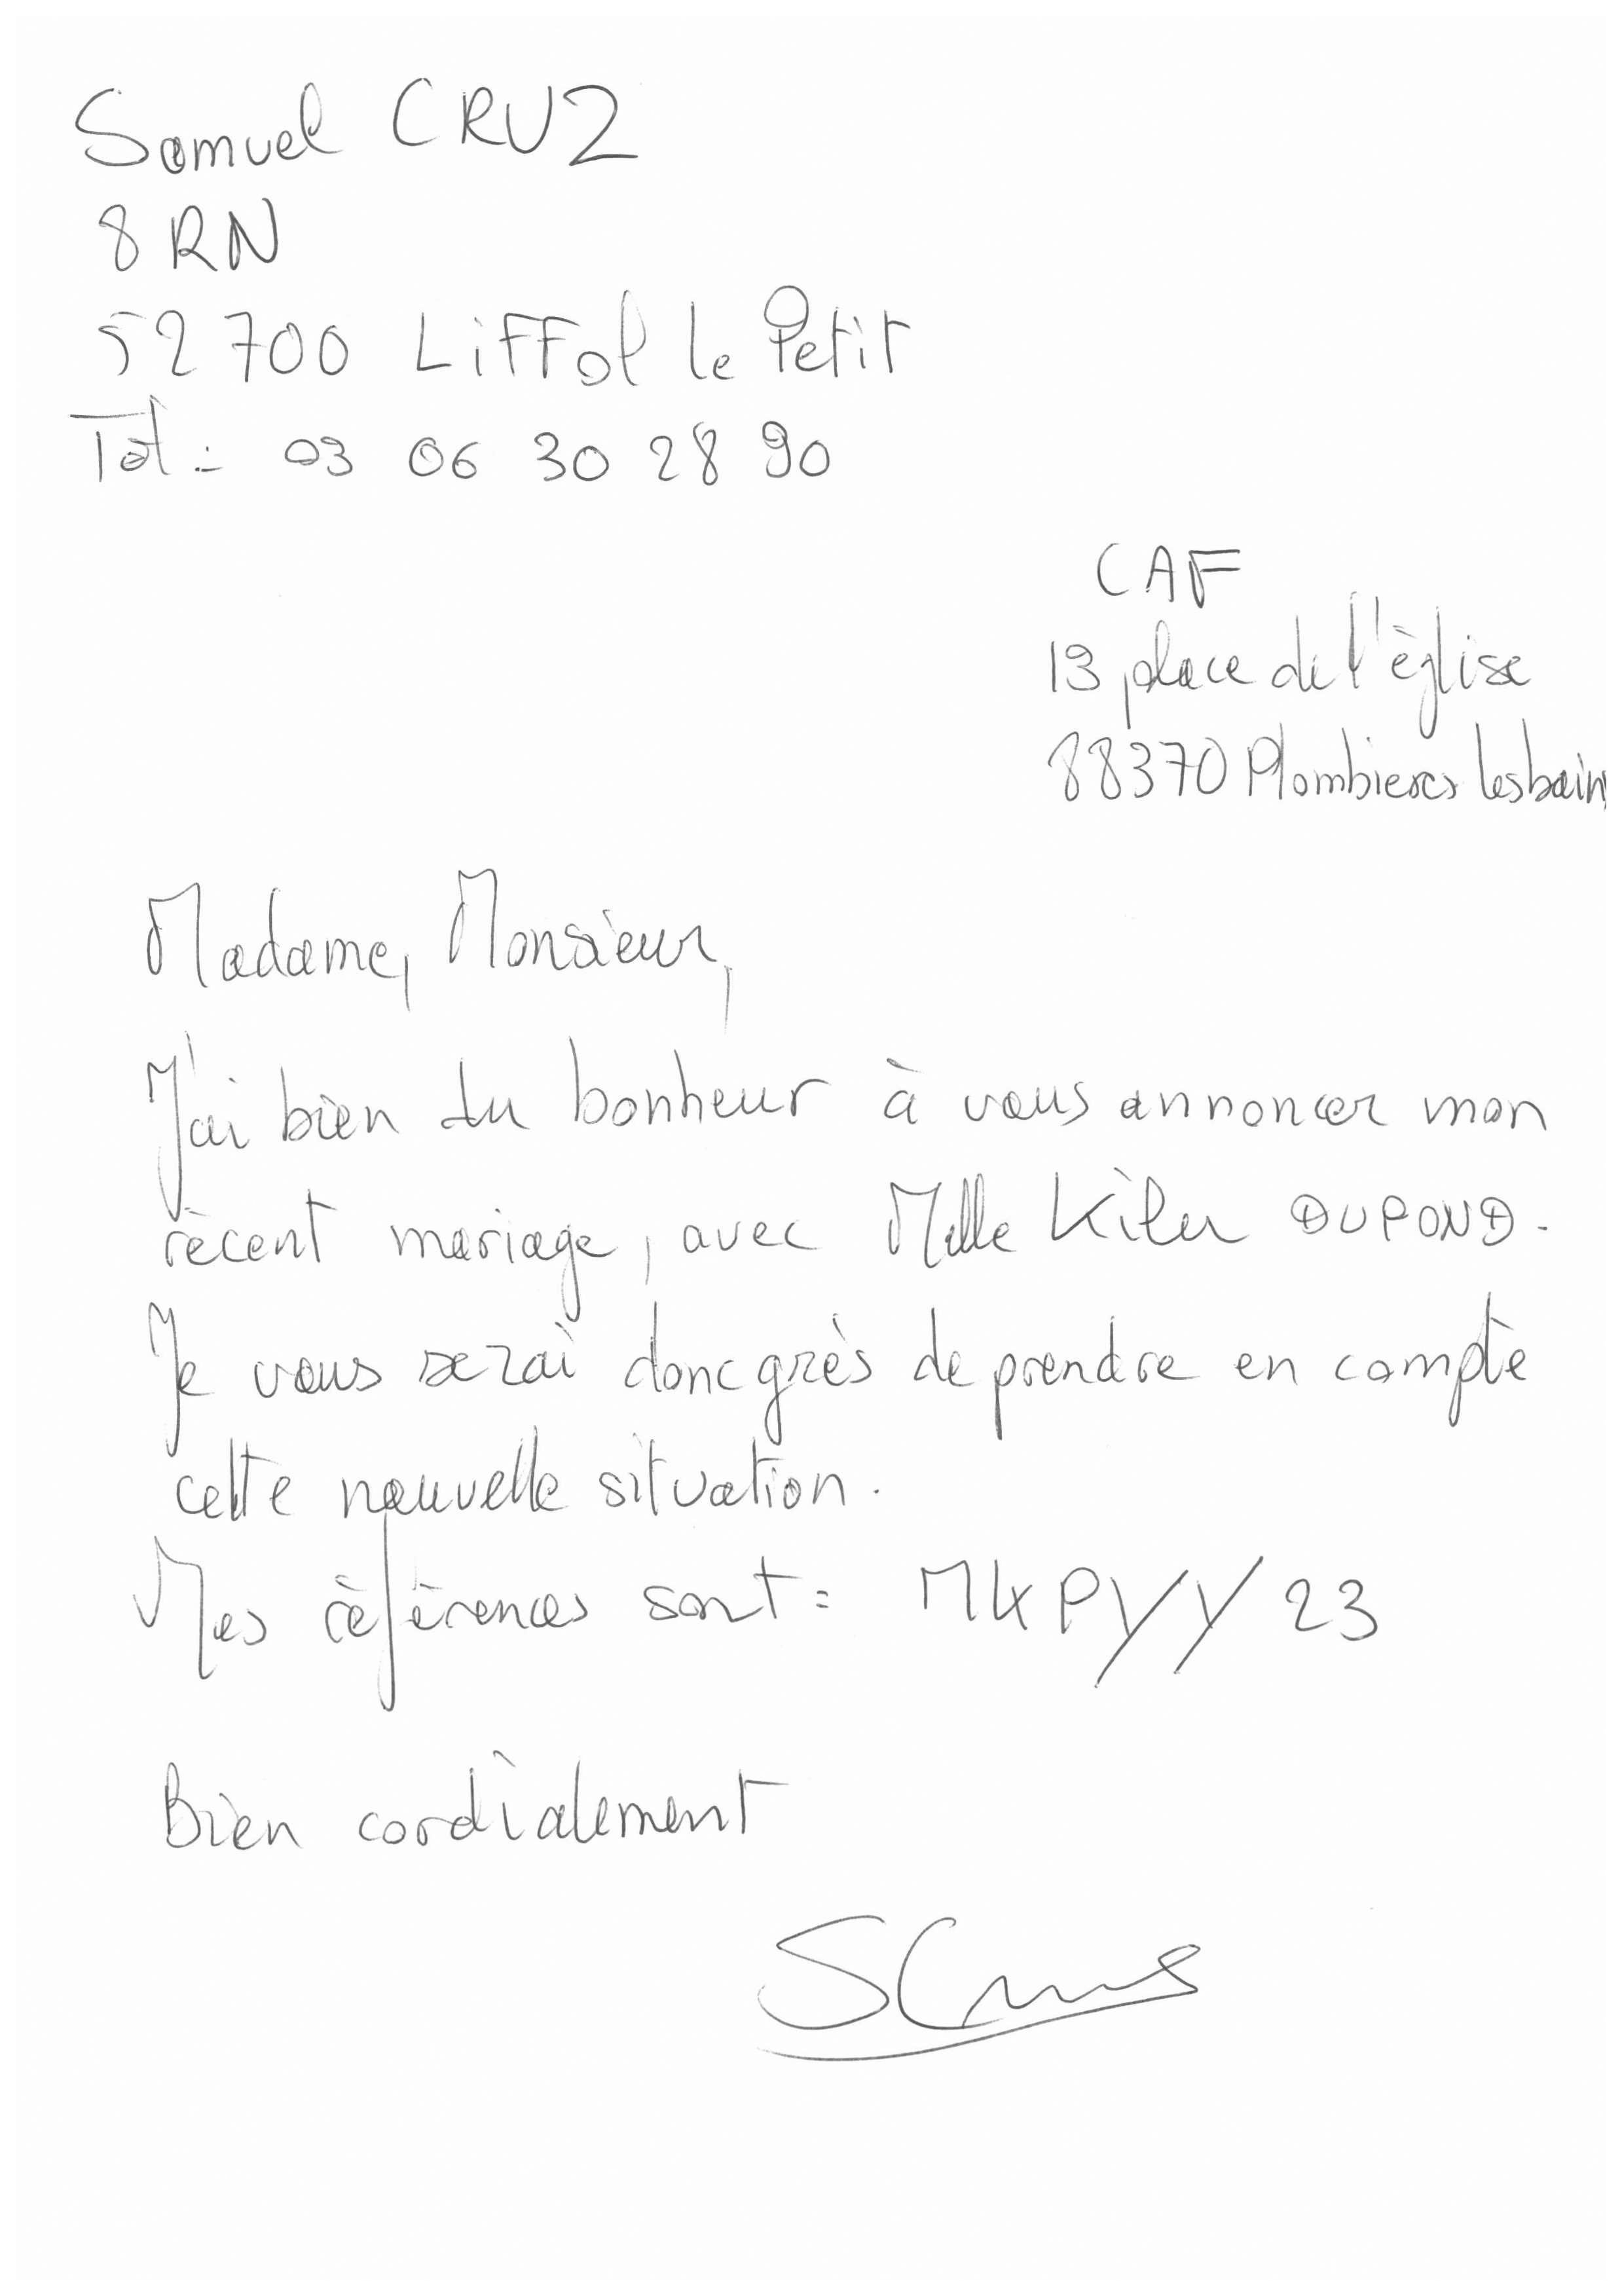 Samuel CRUZ
8 RN
52700 Liffol le Petit
Tél : 03 06 30 28 90
CAF
13 place de l'église
88370 Plombieres les bain
Madame, Monsieur,
J'ai bien du bonheur à vous annoncer mon
récent mariage, avec Melle DUPOND.
Je vous serai donc grès de prendre en compte
cette nouvelle situation.
Mes références sont : MKPYY23
Bien cordialement